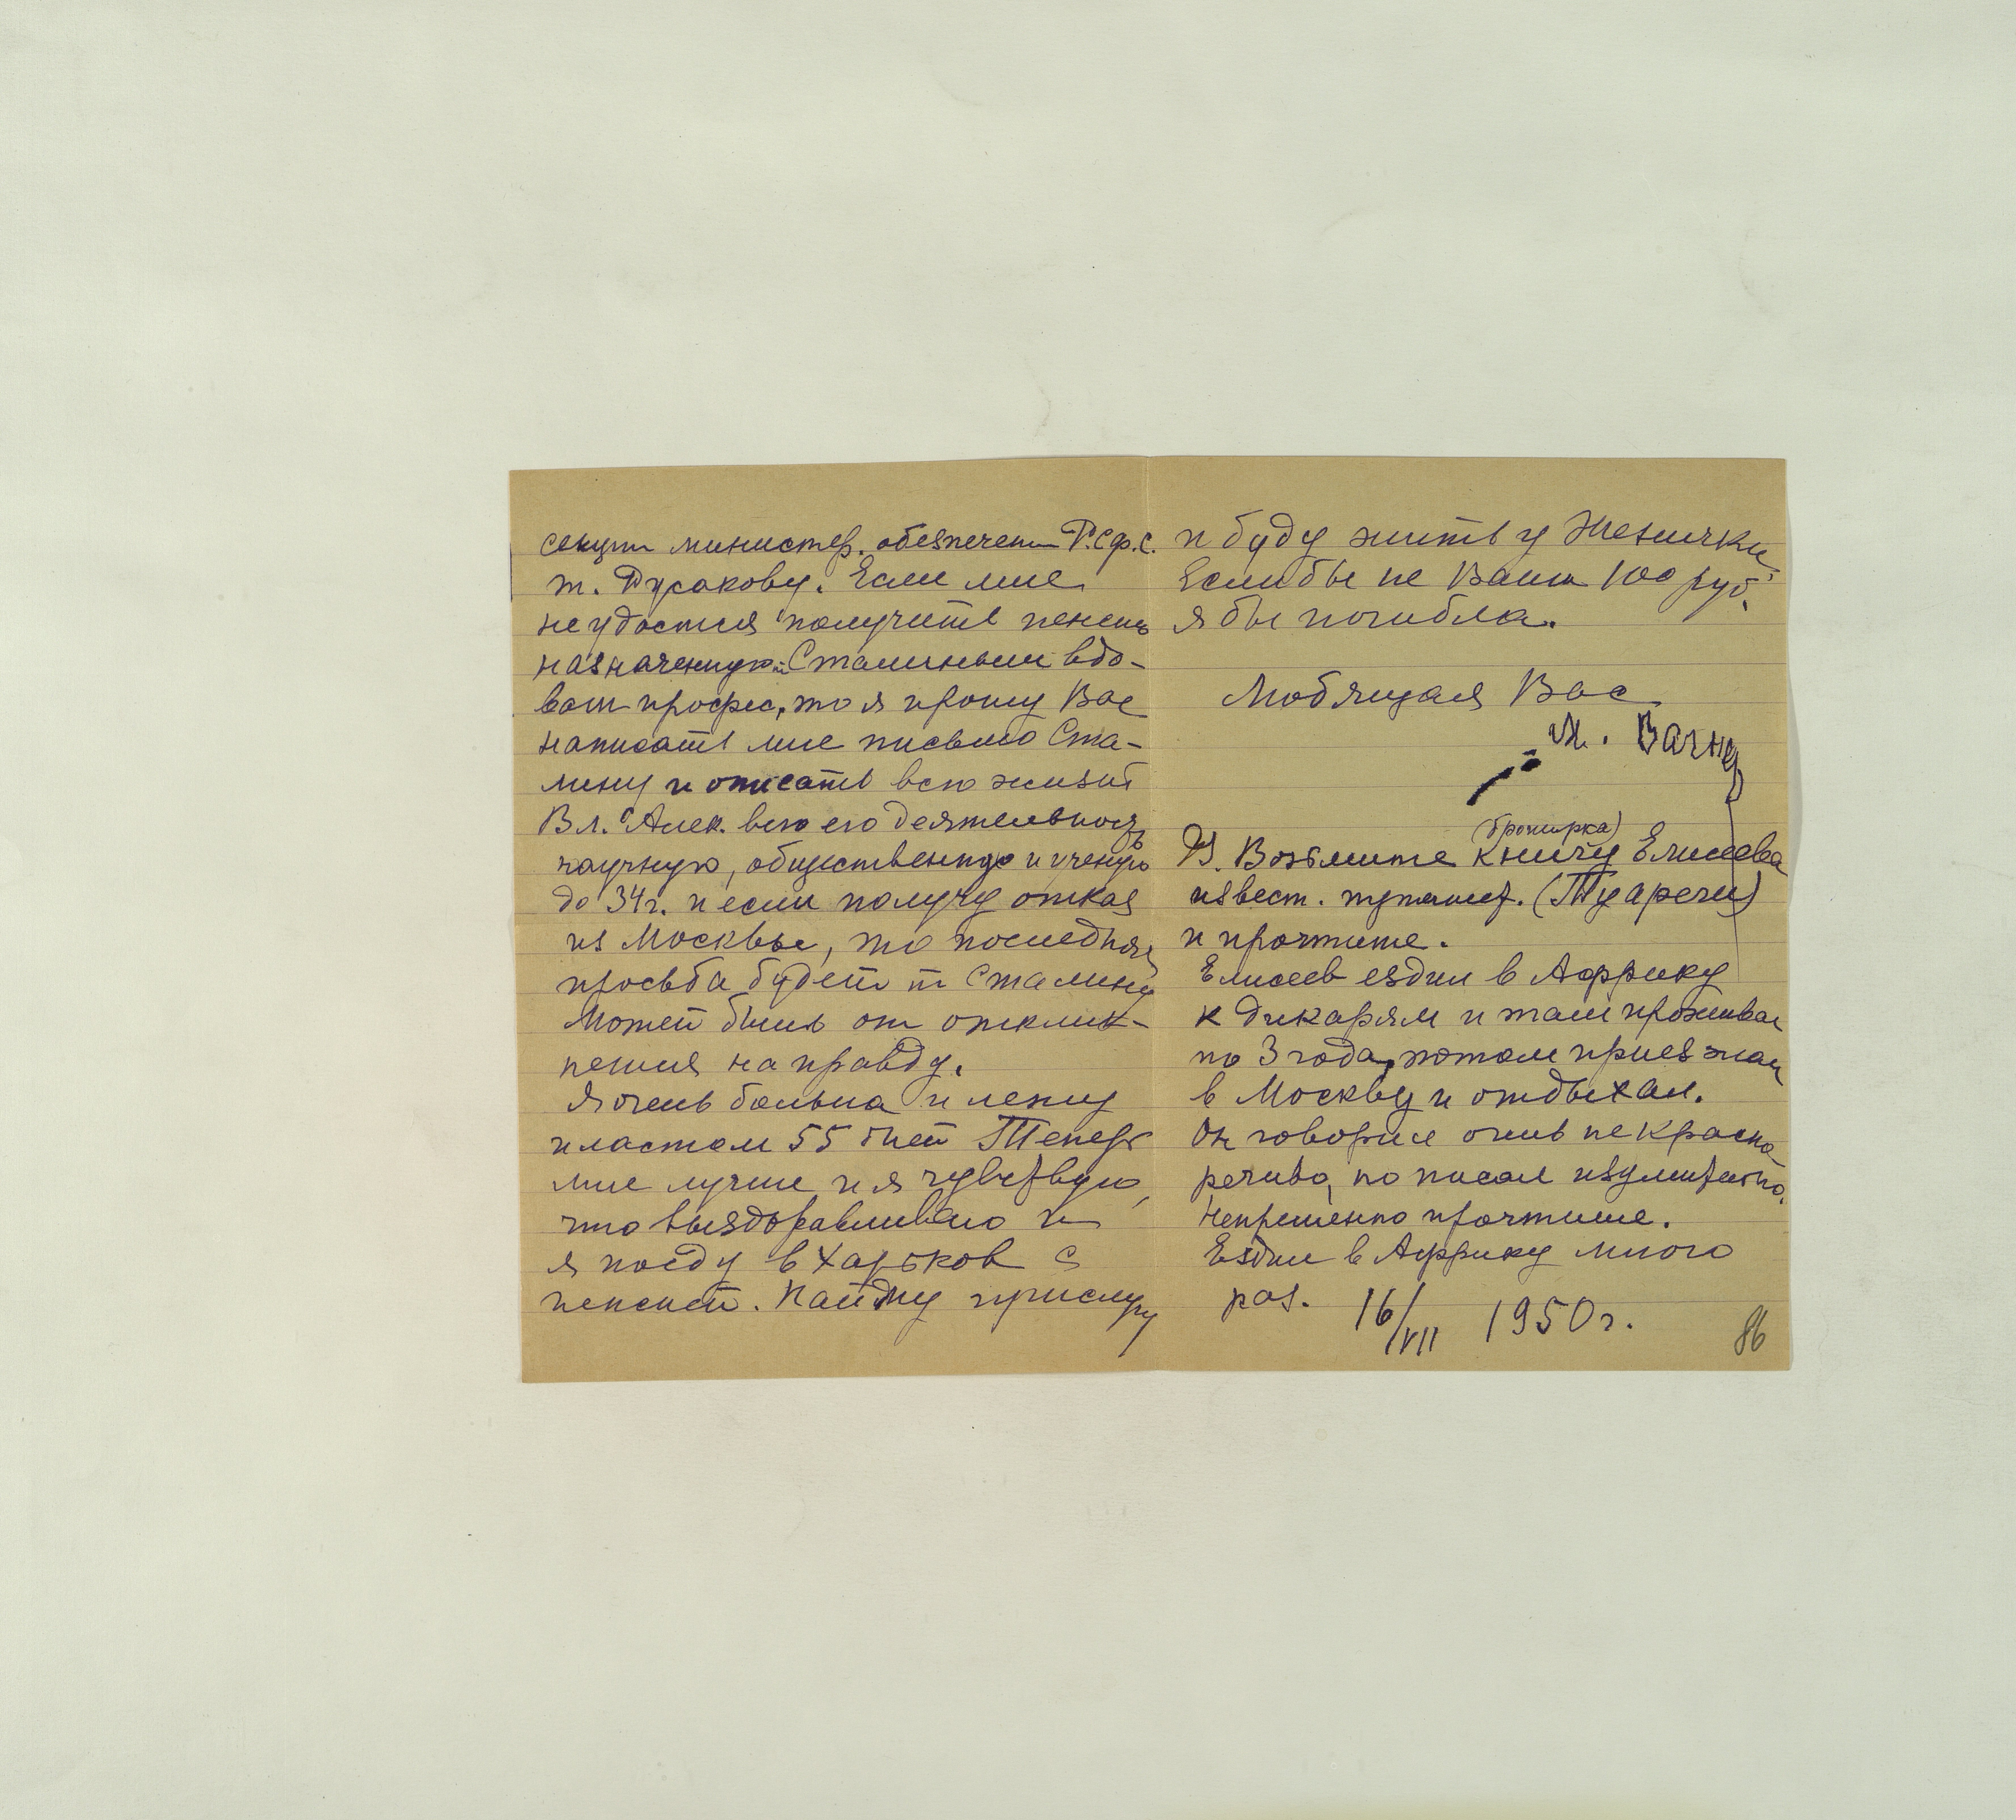 секции министер. обезпечен Р.С.ф.С.
т. Русакову. Если мне
не удастся получить пенсию
назначенную т. Сталиным вдо-
вам профес, то я прошу Вас
написать мне письмо Ста-
лину и описать всю жизнь
Вл. Алек. всю его деятельность
научную, общественную и ученую
до 34 г. и если получу отказ
из Москвы, то последняя
просьба будет т Сталину
Может быть он откликн-
нется на правду.
Я очень больна и лежу
пластом 55 дней Теперь
мне лучше и я чувствую,
что выздоравливаю и
я поеду в Харьков с
пенсией. Найму прислугу
и буду жить у Женички
Если бы не Ваши 100 руб.
я бы погибла.
Любящая Вас
М. Вагнер
(брошюрка)
Возьмите книгу Елисеева
извест. путешест. (Туареги)
и прочтите.
Елисеев ездил в Аффрику
к дикарям и там проживал
по 3 года, потом приезжал
в Москву и отдыхал.
Он говорил очень не красно
речиво, но писал изумительно.
Непременно прочтите.
Ездил в Аффрику много
раз. 16/VII 1950 г.
86